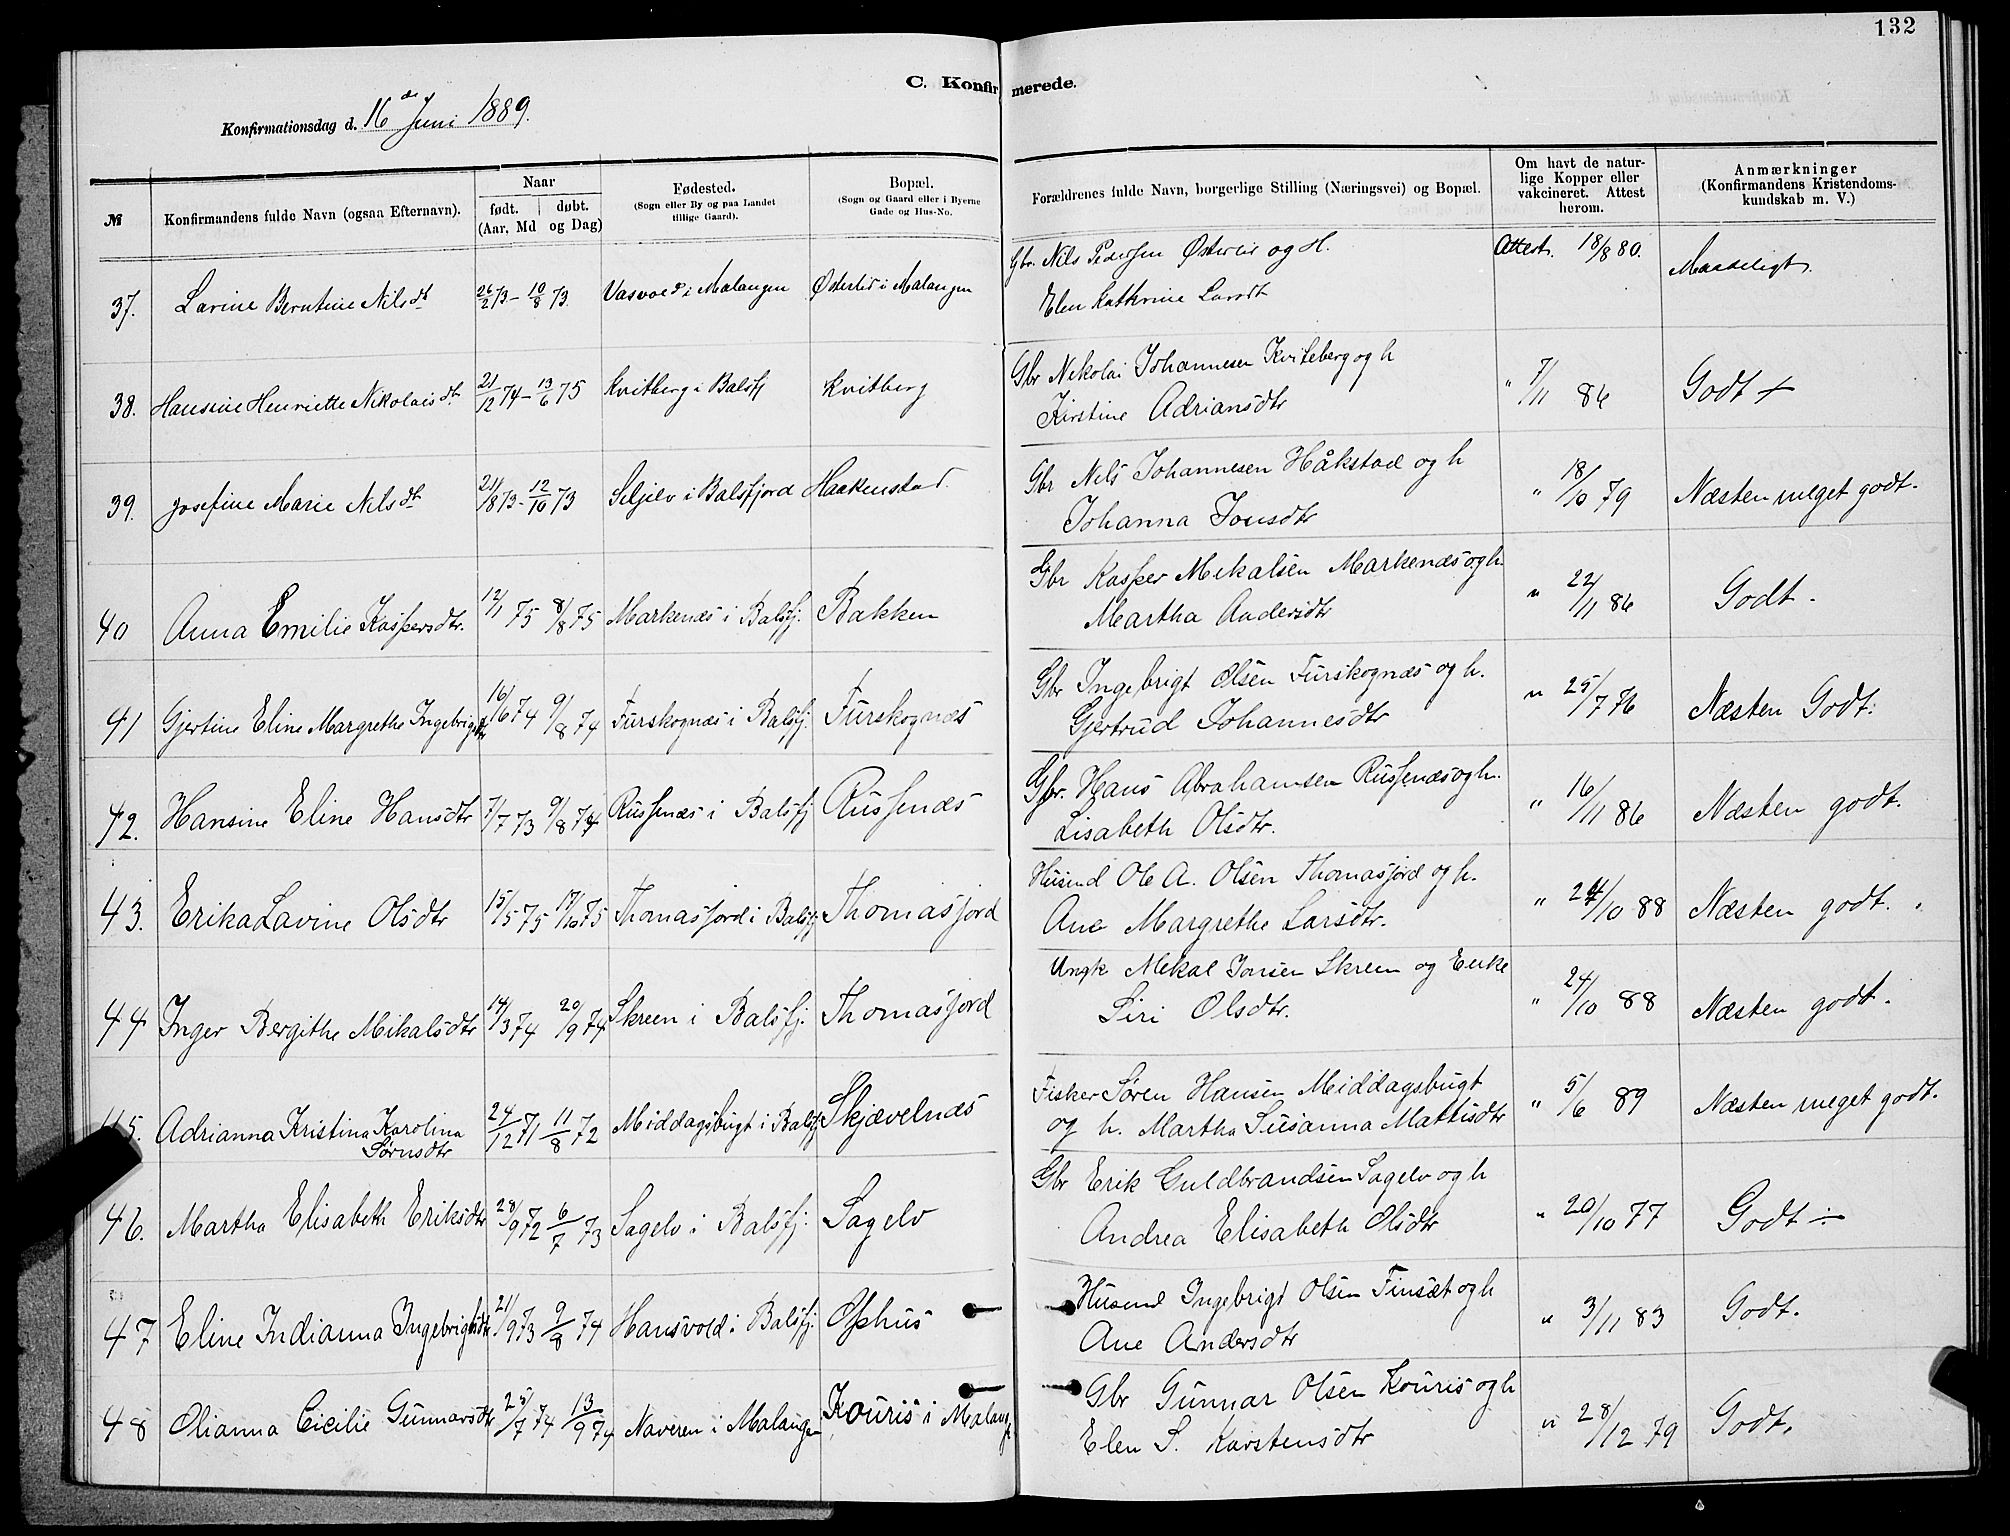 132
C. Konfirmerede.
Konfirmationsdag d. 16de Juni 1889.
№
Konfirmandens fulde Navn (ogsaa Efternavn).
Naar
født. døbt.
(Aar, Md og Dag)
Fødested.
(Sogn eller By og paa Landet
tillige Gaard).
Bopæl.
(Sogn og Gaard eller i Byerne
Gade og Hus-No.
Forældrenes fulde Navn, borgerlige Stilling (Næringsvei) og Bopæl.
Om havt de natur-
lige Kopper eller
vakcineret. Attest
herom.
Anmærkninger
(Konfirmandens Kristendoms-
kundskab m. V.)
37. Larine Berntine Nilsdt 26/2 73 - 10/8 73. i Malangen Østerlid i Malangen Gbr. Nils Pedersen og H. Attest. 18/8 80. Maadeligt.
Elen Kathrine Larsdt
38. Hansine Henriette Nikolaisdt 21/12 74 - 13/6 75 Kvitberg i Balsfj Kvitberg Gbr Nikolai Johannesen Kviteberg og h " 7/11 86 Godt +
Kirstine Adriansdtr
39. Josefine Marie Nilsdt 21/8 73 - 12/10 73 Seljelv i Balsfjord Haakenstad. Gbr Nels Johannesen Håkstad og h " 18/10 79 Næsten meget godt.
Johanna Jonsdtr
40 Anna Emilie Kaspersdtr. 12/1 75 8/8 75 Markenæs i Balsfj. Bakken Gbr Kasper Mekalsen Markenæs og h. " 22/11 86 Godt.
Martha Andersdtr
41 Gjertine Eline Margrethe Ingebrigtsdtr 16/6 74 9/8 74 Furskognæs i Balsfj. Furskognæs Gbr Ingebrigt Olsen Furskognæs og h. " 25/7 76 Næsten Godt.
Gjertrud Johannesdtr
42. Hansine Eline Hansdtr 7/7 73 9/8 74 Russenæs i Balsfj Russenæs Gbr. Hans Abrahamsen Russenæs og h. " 16/11 86 Næsten godt.
Lisabeth Olsdtr.
43. Erika Lavine Olsdtr 15/5 75 17/10 75 Thomasjord i Balsfj Thomasjord Husmd Ole A. Olsen Thomasjord og h. " 24/10 88 Næsten godt.
Ane Margrethe Larsdtr.
44 Inger Bergithe Mikalsdtr 14/3 74 20/9 74 Skreen i Balsfj. Thomasjord Ungk Mekal Jonsen Skreen og Enke " 24/10 88 Næsten godt.
Siri Olsdtr.
45. Adrianna Kristina Karolina 24/12 71 11/8 72 Middagsbugt i Balsfj Skjævelnæs Fisker Søren Hansen Middagsbugt " 5/6 89 Næsten meget godt.
Sørnsdtr og h. Martha Susanna Mattisdtr
46. Martha Elisabeth Eriksdtr 28/9 72 6/7 73 Sagelv i Balsfj. Sagelv Gbr Erik Guldbrandsen Sagelv og h " 20/10 77 Godt ÷
Andrea Elisabeth Olsdtr
47 Eline Indianna Ingebrigtsdtr 21/9 73 9/8 74 Hansvold i Balsfj. Ophus Husmd Ingebrigt Olsen Finsæt og h " 3/11 83 Godt.
Ane Andersdtr
48 Olianna Cicilie Gunnarsdtr 25/7 74 13/9 74 Naveren i Malangen Kouris i Malang. Gbr Gunnar Olsen Kouris og h " 28/12 79 Godt.
Elen S. Karstensdtr